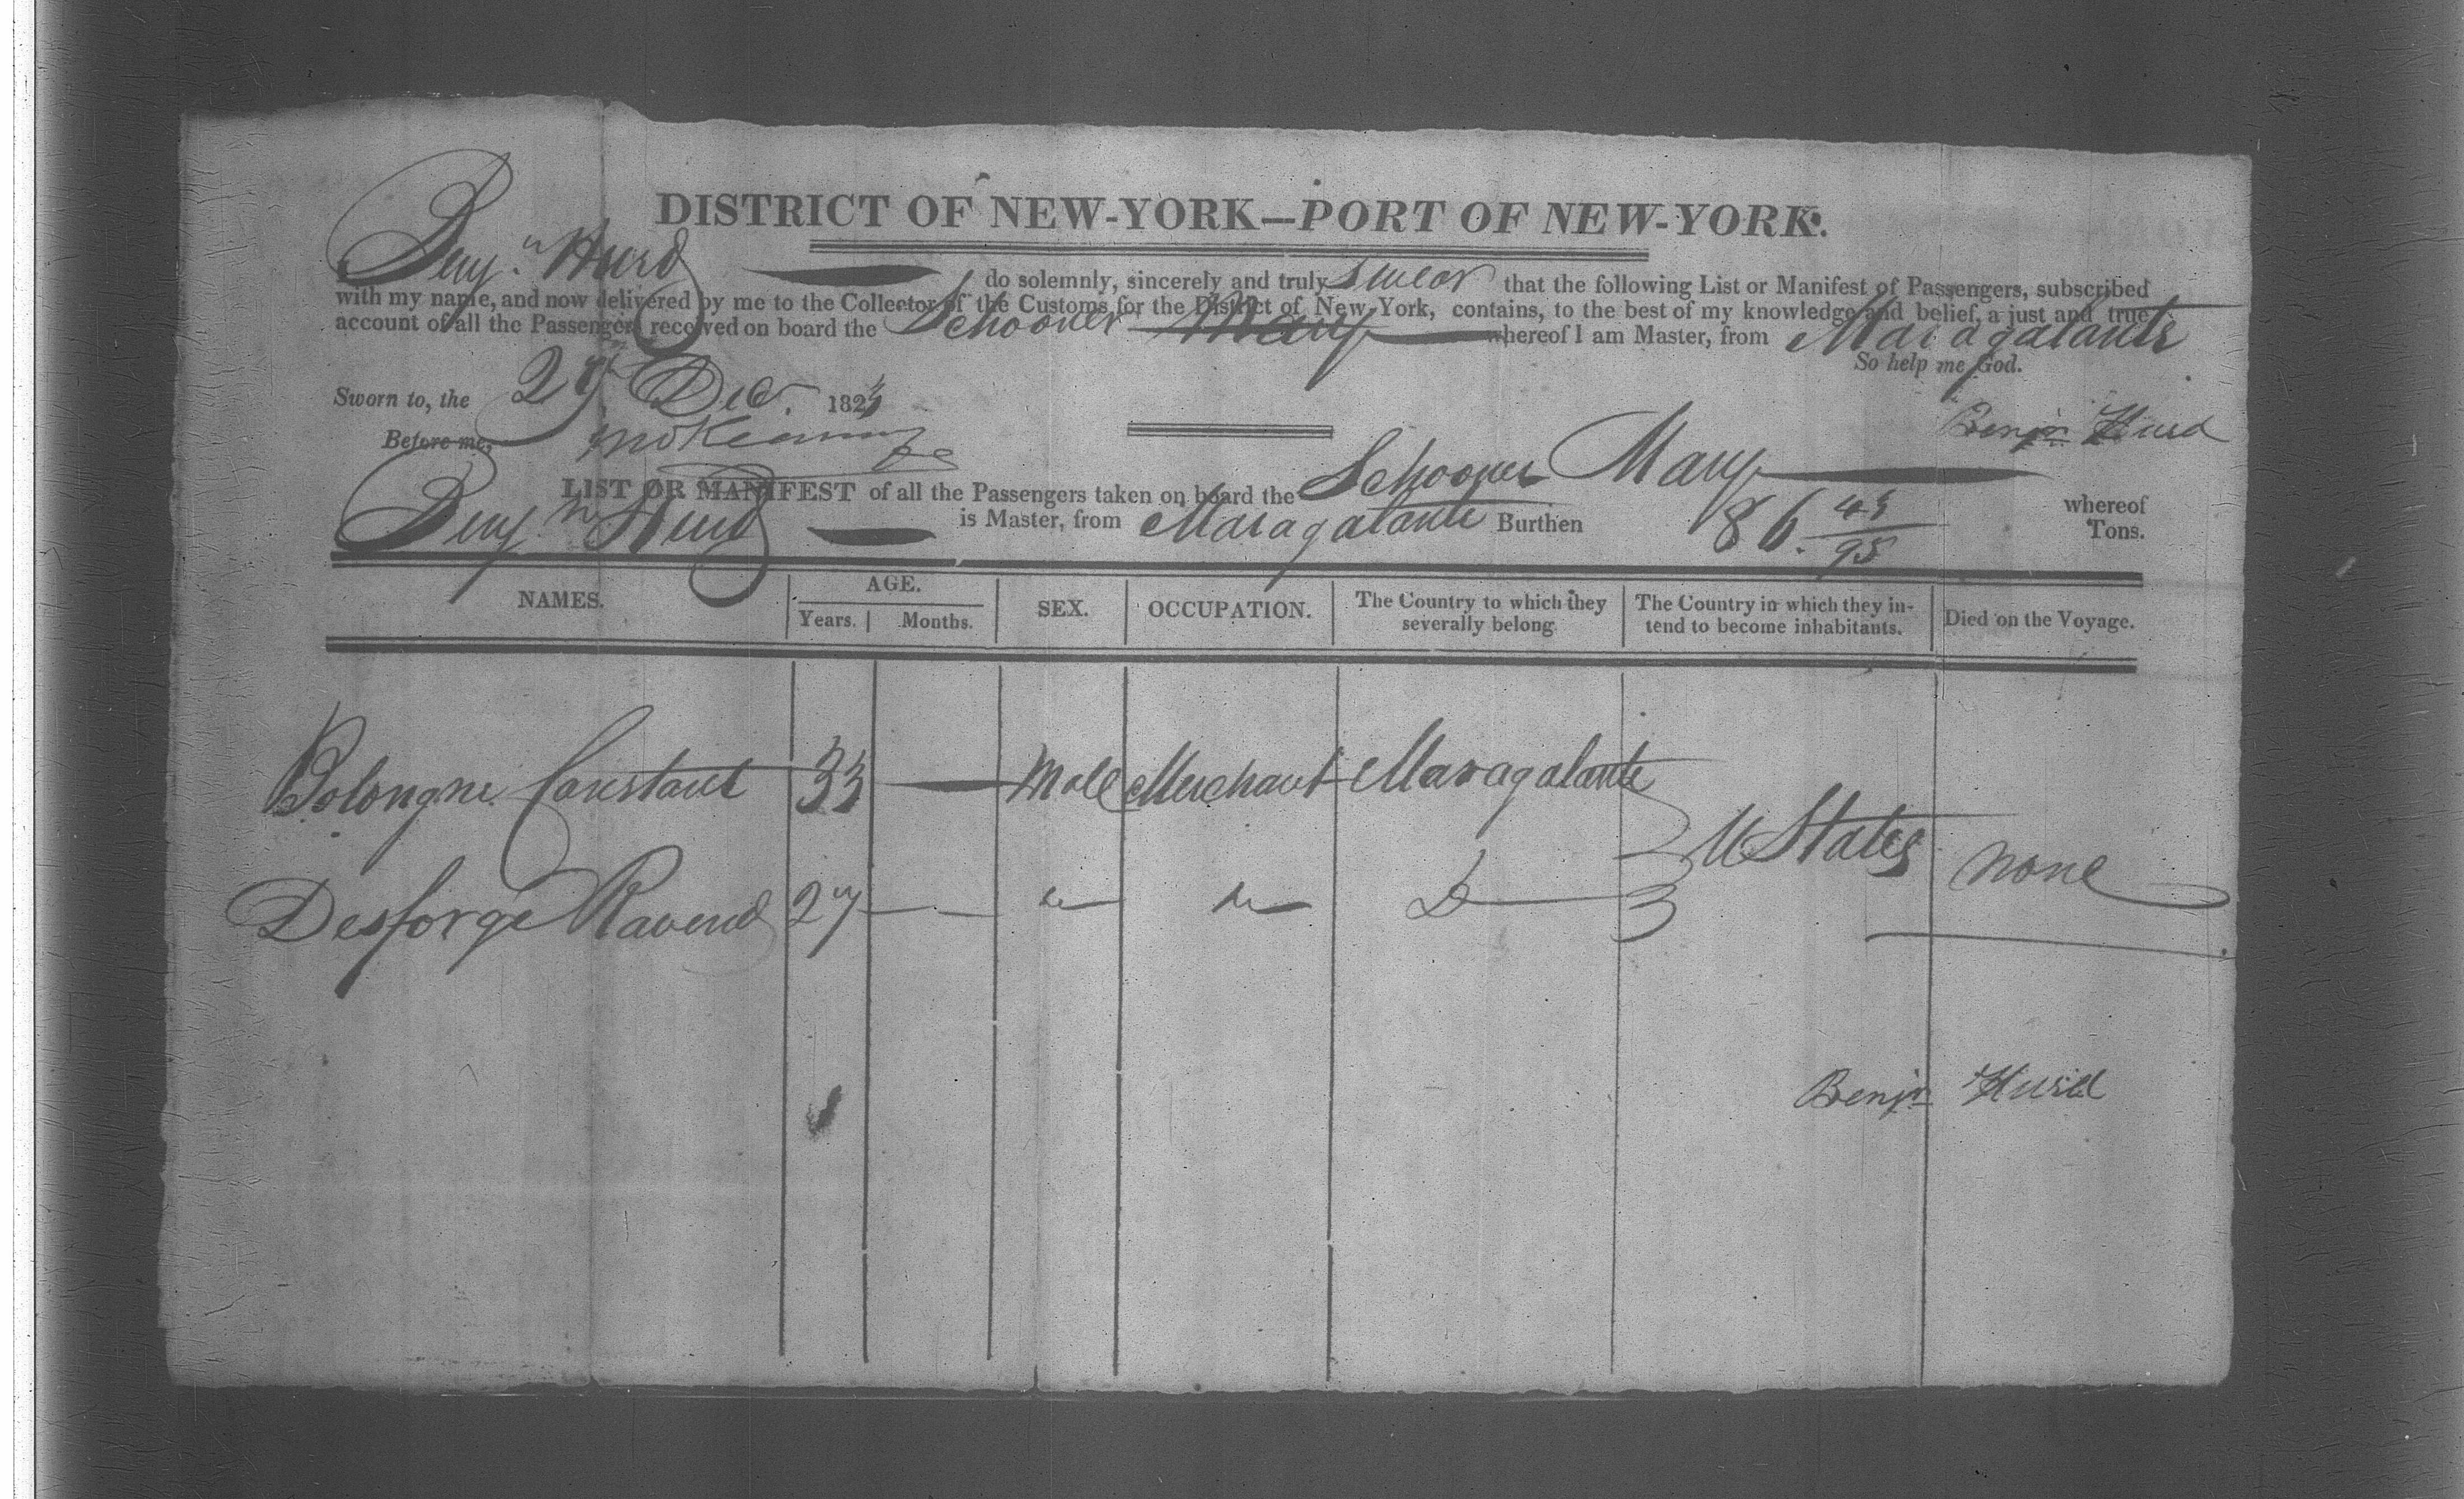 DISTRICT OF NEW-YORK—PORT OF NEW-YORK.
Benjn Hurd do solemnly, sincerely and truly swear that the following List or Manifest of Passengers, subscribed
with my name, and now delivered by me to the Collector of the Customs for the District of New-York, contains, to the best of my knowledge and belief, a just and true
account of all the Passengers received on board the Schooner Mary whereof I am Master, from Maragalante
So help me God.
Sworn to, the 29 Dec. 1823
Benjn Hurd
Before me,
LIST OR MANIFEST of all the Passengers taken on board the Schooner Mary whereof
Benjn Hurd is Master, from Maragalante Burthen 86. 43/95 Tons.
NAMES. AGE. Years. Months. SEX. OCCUPATION. The Country to which they severally belong. The Country in which they intend to become inhabitants. Died on the Voyage.
Bolongne Constant 33 Male Merchant Maragalante
U States none
Desforge Ravend 27 Do
Benjn Hurd